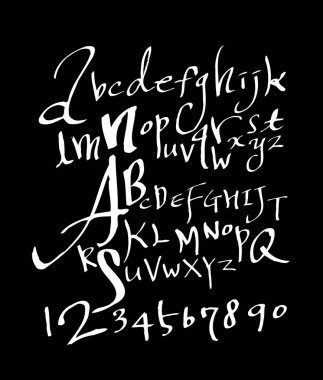 abcdefghijk
lmnopqrst
uvwxyz
ABCDEFGHIJ
KLMNOPQ
RSUVWXYZ
1234567890